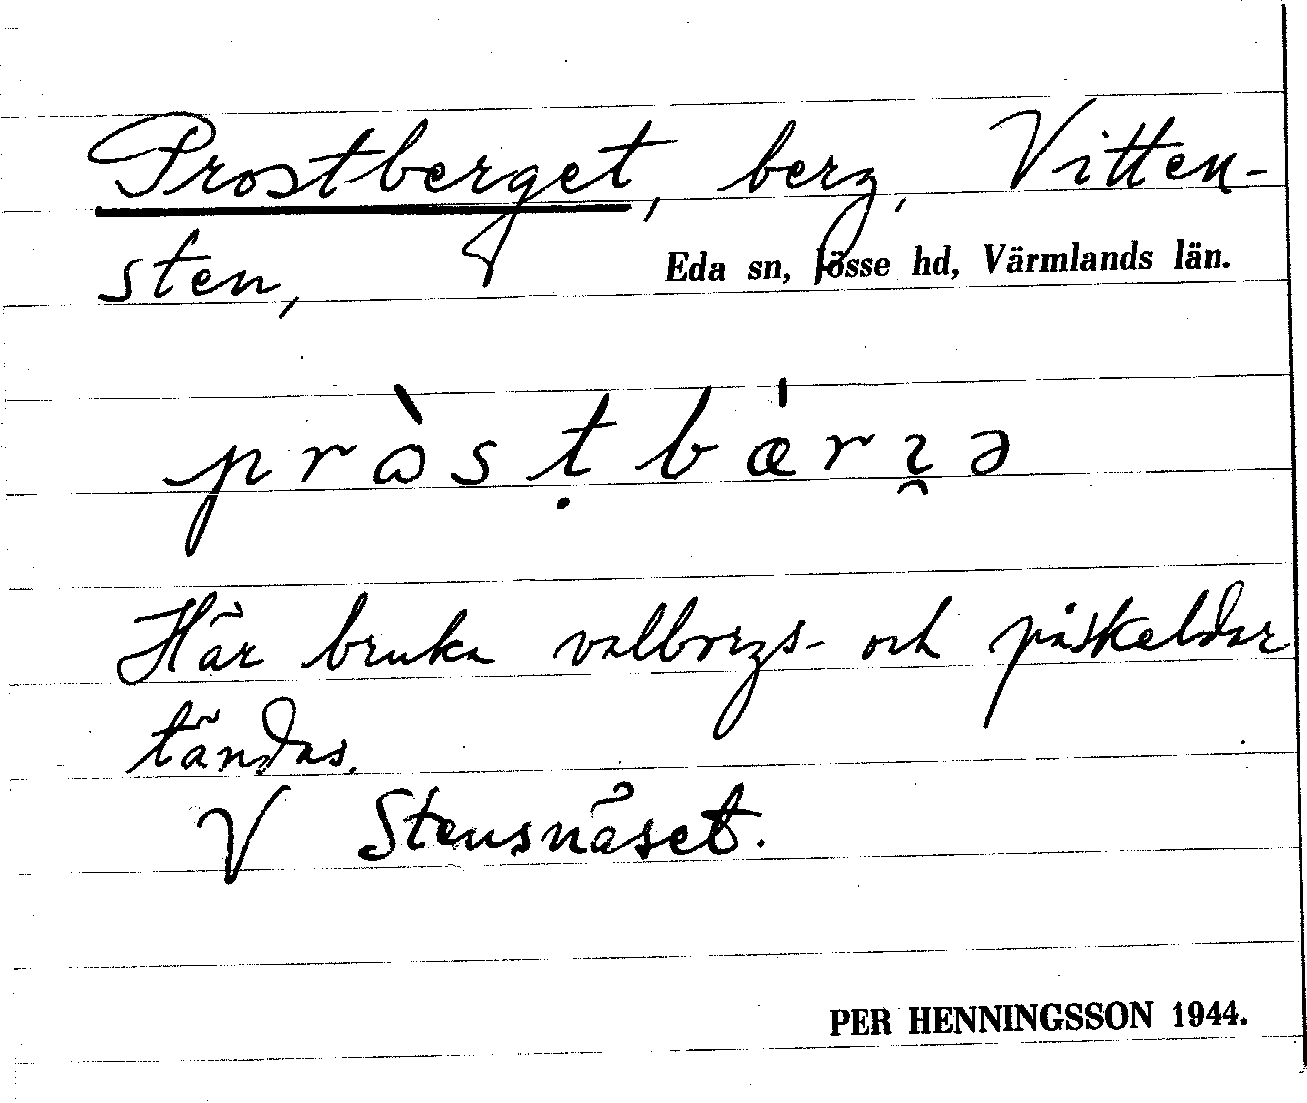 Prostberget, berg, Vitten-
sten, Eda sn, Jösse hd, Värmlands län.
pròsṭbǽrı̯ə
Här bruka valborgs- och påskeldar
tändas.
V Stensnäset.
PER HENNINGSSON 1944.